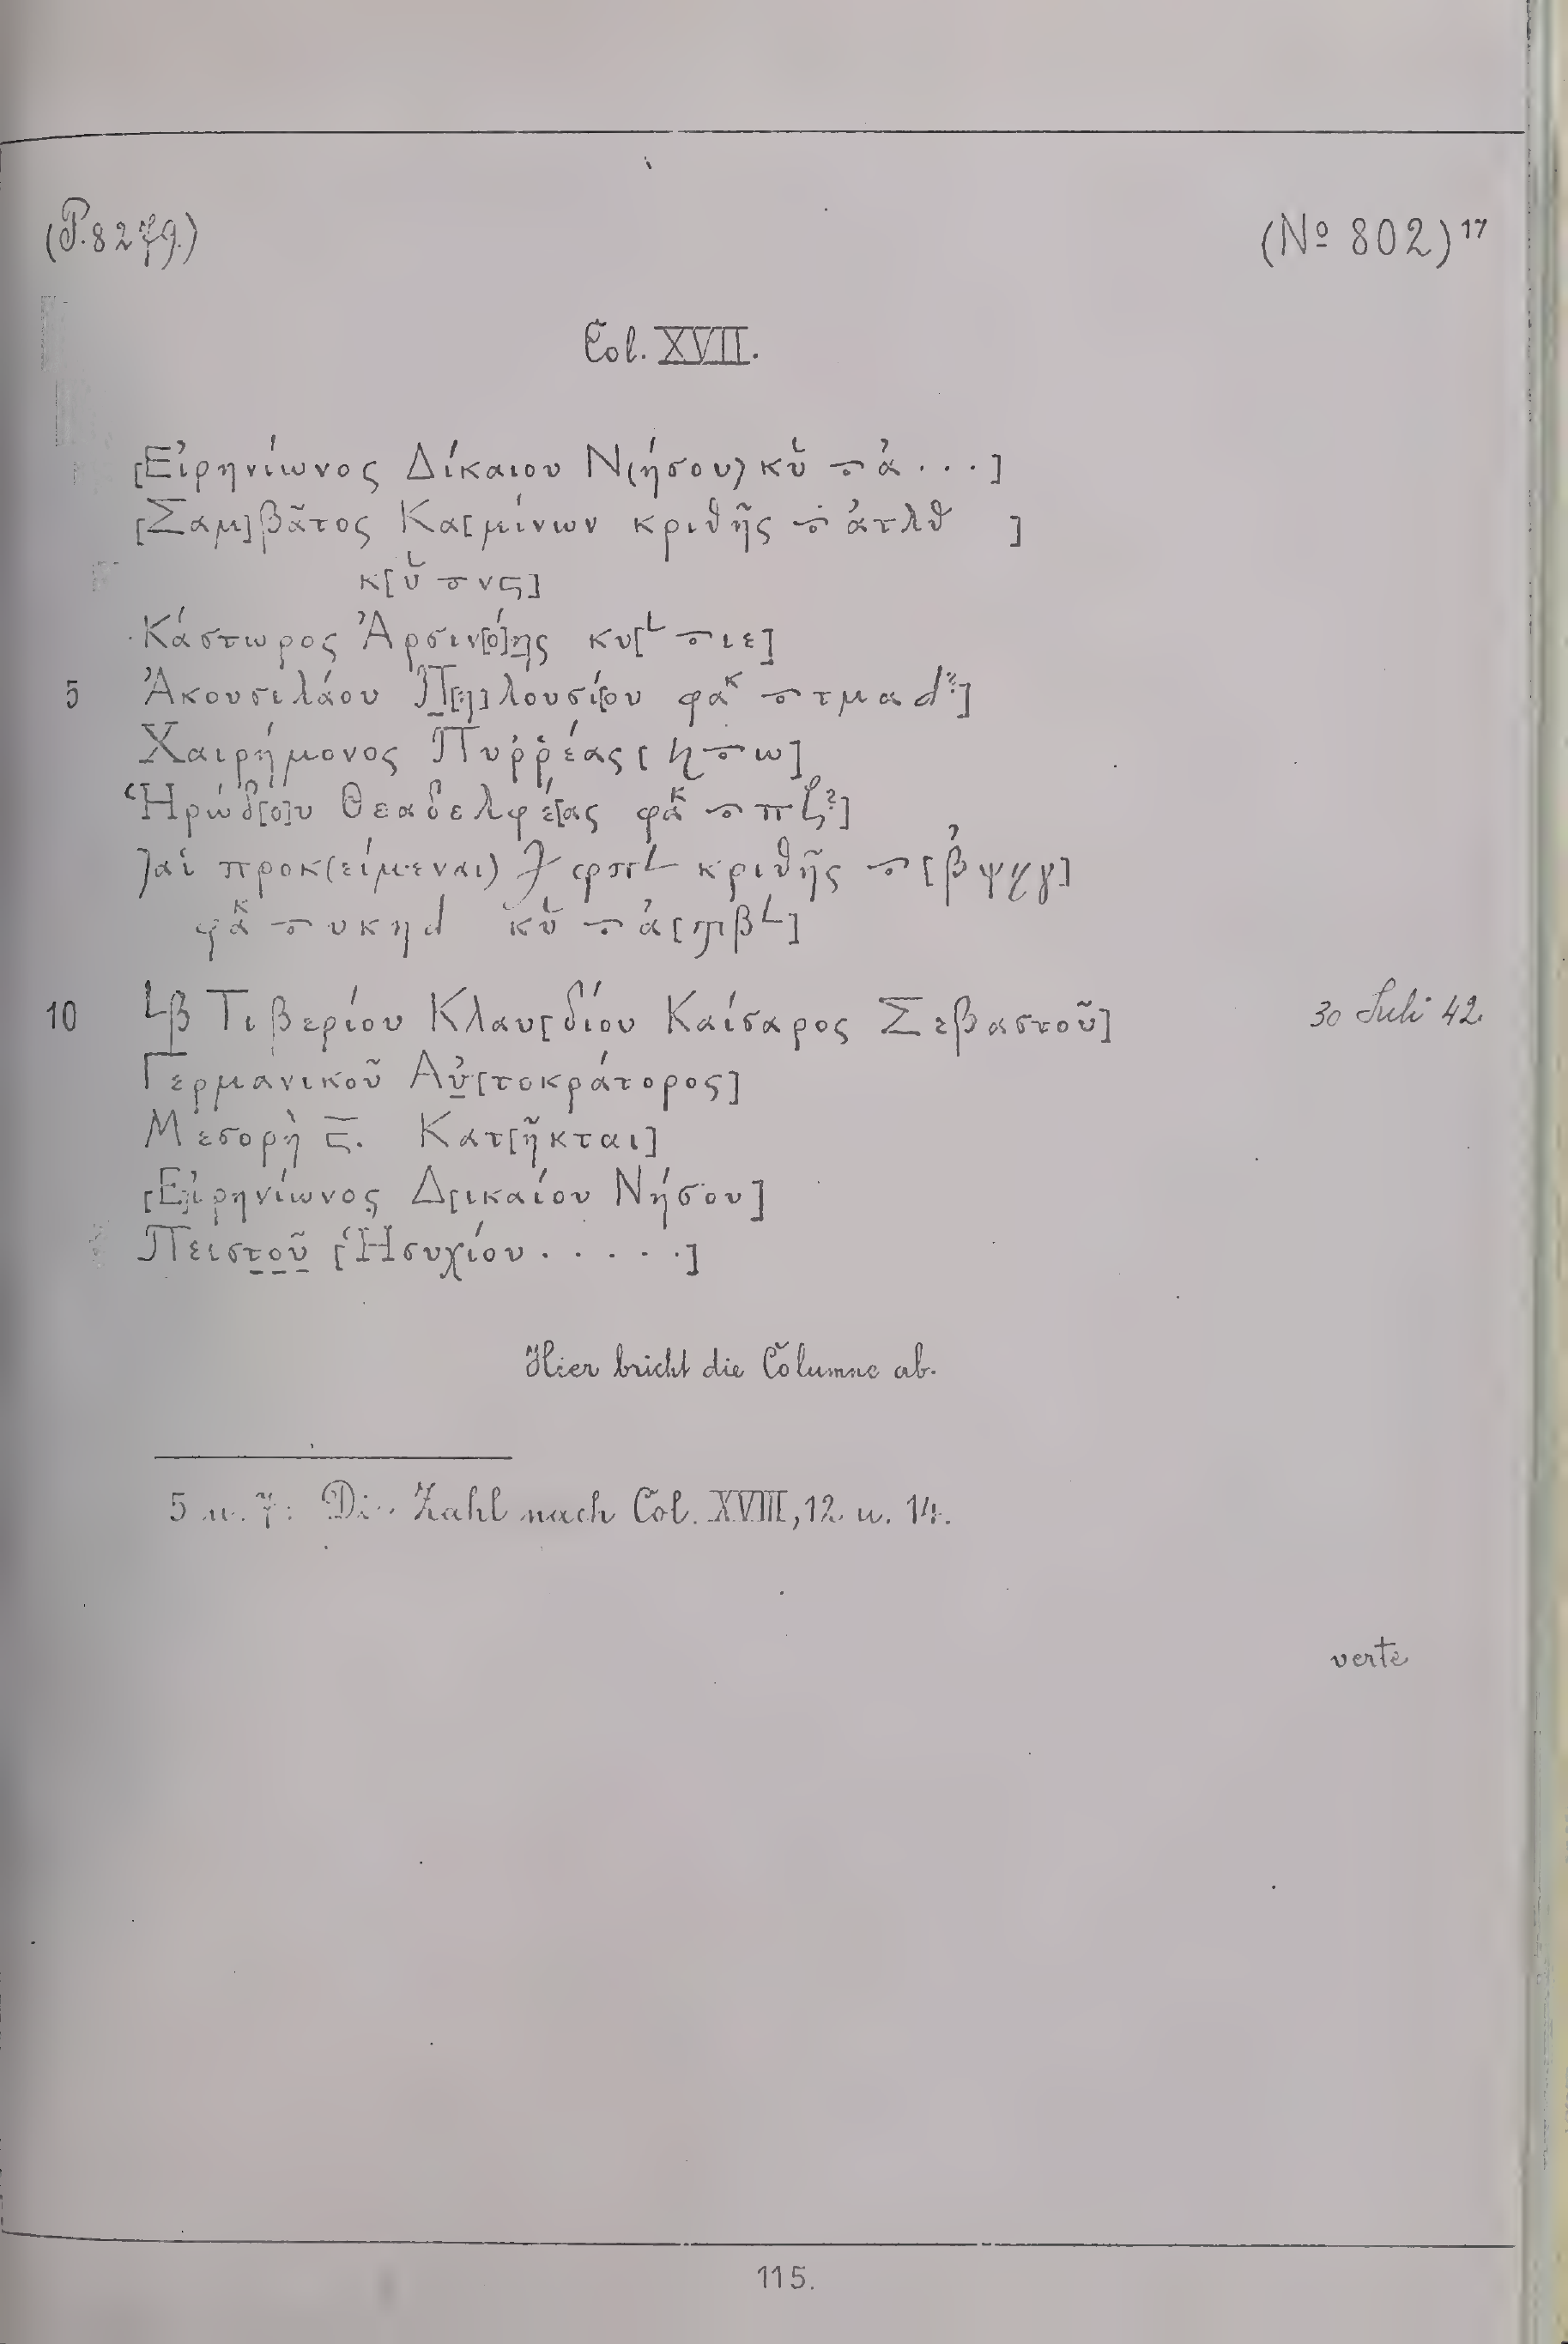 (P. 8279.)
(Nº 802)¹⁷
Col. XVII.
[Εἰρηνίωνος Δίκαιου Ν(ήσου) κῠ ⨪ ἀ . . . ]
[Σαμ]βᾶτος Κα[μίνων κριθῆς ⨪ ἀτλθ ]
κ[ῠ ⨪ νϛ]
Κάστωρος Ἀρσιν[ό]ης κυ[∟ ⨪ ιε]
5 Ἀκουσιλάου Π[η]λουσί[ου φακ ⨪ τμα d?]
Χαιρήμονος Πυῤῥέας [ ϟ ⨪ ω]
Ἡρώδ[ο]υ Θεαδελφέ[ας φακ ⨪ πζ?]
]αἱ προκ(είμεναι) φπ∟ κριθῆς ⨪ [β ψϟγ]
φακ ⨪ υκη d κῠ ⨪ ἀ[ϡβ∟]
10 ∟β Τιβερίου Κλαυ[δίου Καίσαρος Σεβαστοῦ]
30 Juli 42.
Γερμανικοῦ Αὐ[τοκράτορος]
Μεσορὴ ϛ̅. Κατ[ῆκται]
[Ε]ἰρηνίωνος Δ[ικαίου Νήσου]
Πειστοῦ [Ἡσυχίου . . . . . ]
Hier bricht die Columne ab.
5 u. 7: Die Zahl nach Col. XVIII, 12 u. 14.
verte
115.